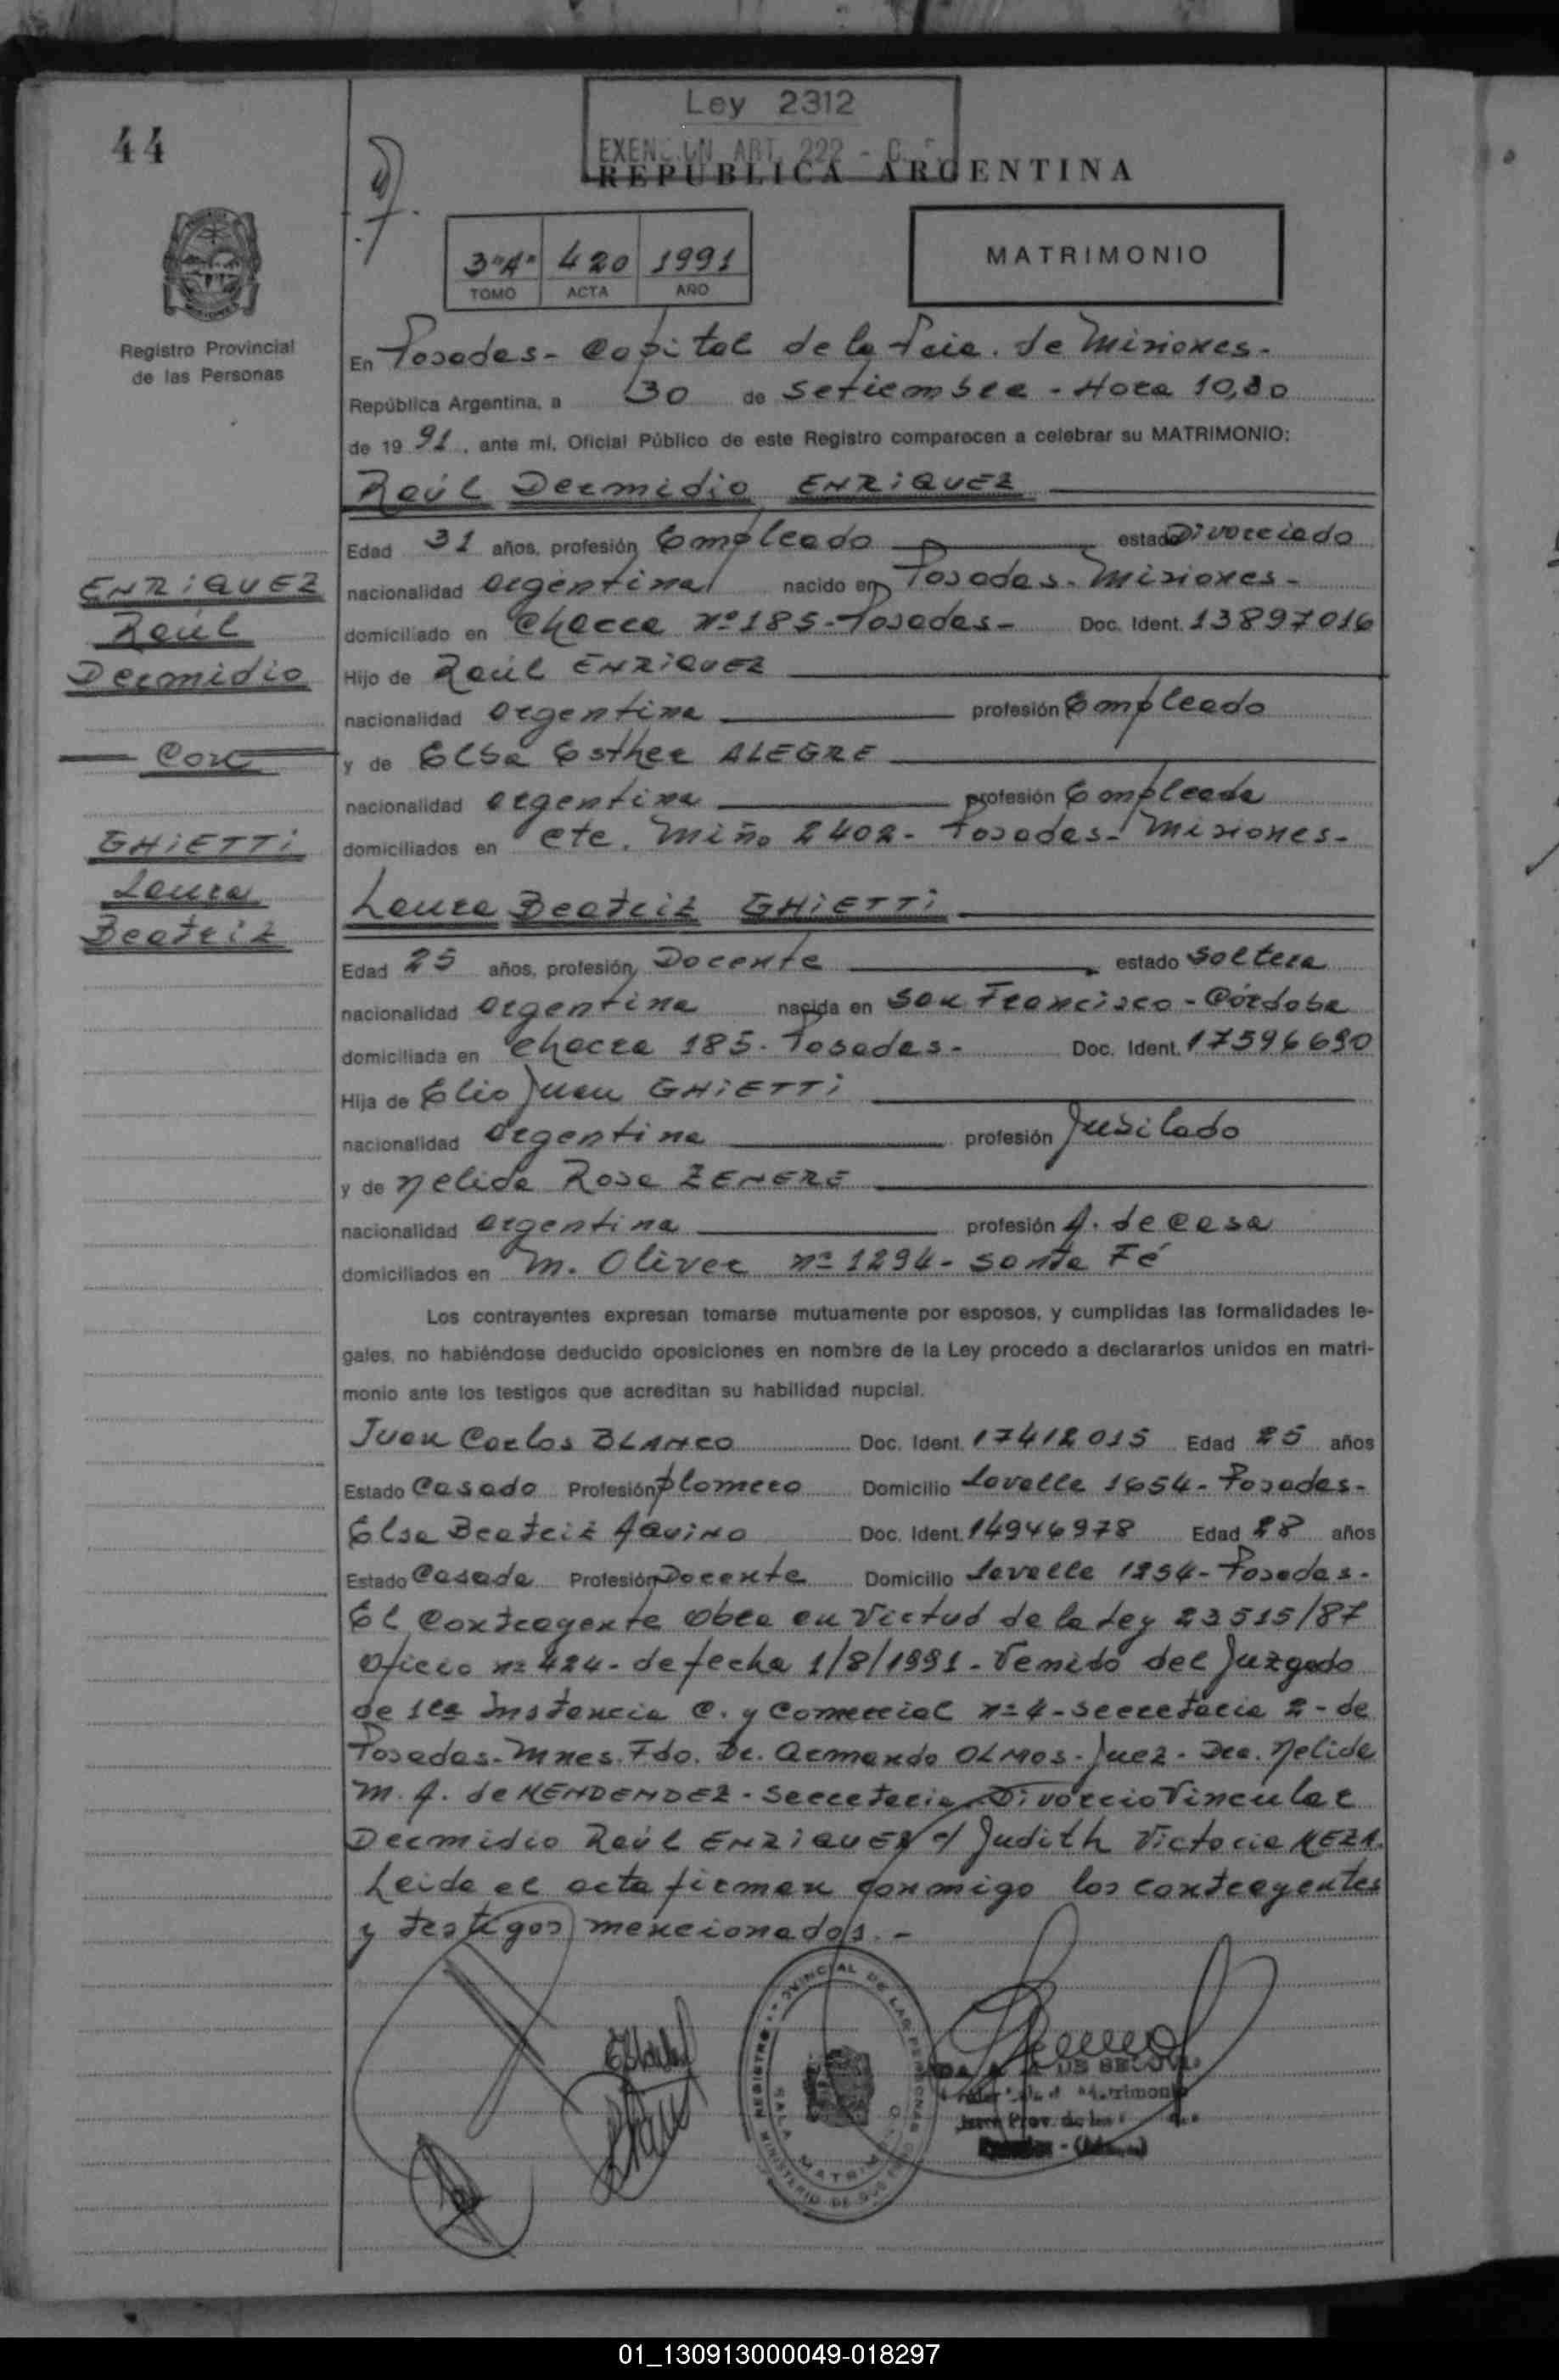 44
Ley 2312
EXENCION ART. 222 -
REPUBLICA ARGENTINA
3"A" 420 1991
TOMO ACTA AÑO
MATRIMONIO
Registro Provincial
de las Personas
En Posadas - Capital de la Pcia. de Misiones -
República Argentina, a 30 de Setiembre - Hora 10,30
de 1991, ante mí, Oficial Público de este Registro comparecen a celebrar su MATRIMONIO:
Raúl Dermidio ENRIQUEZ
Edad 31 años, profesión Empleado estado Divorciado
nacionalidad argentina nacido en Posadas - Misiones -
domiciliado en Chacra Nº 185 - Posadas - Doc. Ident. 13897016
Hijo de Raúl ENRIQUEZ
nacionalidad argentina profesión Empleado
y de Elba Esther ALEGRE
nacionalidad argentina profesión Empleada
domiciliados en Cte. Miño 2402 - Posadas - Misiones -
ENRIQUEZ
Raúl
Dermidio
Con
GHIETTI
Laura
Beatriz
Laura Beatriz GHIETTI
Edad 25 años, profesión Docente estado Soltera
nacionalidad argentina nacida en San Francisco - Córdoba
domiciliada en Chacra 185 - Posadas - Doc. Ident. 17596690
Hija de Elio Juan GHIETTI
nacionalidad argentina profesión Jubilado
y de Nelida Rosa ZENERE
nacionalidad argentina profesión A. de Casa
domiciliados en M. Oliver nº 1294 - Santa Fé
Los contrayentes expresan tomarse mutuamente por esposos, y cumplidas las formalidades le-
gales, no habiéndose deducido oposiciones en nombre de la Ley procedo a declararlos unidos en matri-
monio ante los testigos que acreditan su habilidad nupcial.
Juan Carlos BLANCO Doc. Ident. 17412015 Edad 25 años
Estado Casado Profesión plomero Domicilio Lavalle 1654 - Posadas -
Elsa Beatriz AQUINO Doc. Ident. 14946978 Edad 28 años
Estado Casada Profesión Docente Domicilio Lavalle 1254 - Posadas -
El Contrayente obra en Virtud de la Ley 23515/87
Oficio nº 424 - de fecha 1/8/1991 - Venido del Juzgado
de 1ra Instancia C. y Comercial nº 4 - Secretaria 2 - de
Posadas - Mnes. Fdo. Dr. Armando OLMOS - Juez - Dra. Nelida
M. A. de MENDENDEZ - Secretaria - Divorcio Vincular
Dermidio Raúl ENRIQUEZ c/ Judith Victoria MEZA.
Leida el acta firman conmigo los contrayentes
y testigos mencionados. -
REGISTRO PROVINCIAL DE LAS PERSONAS
SALA MATRIMONIO
MINISTERIO DE
DE
01_130913000049-018297